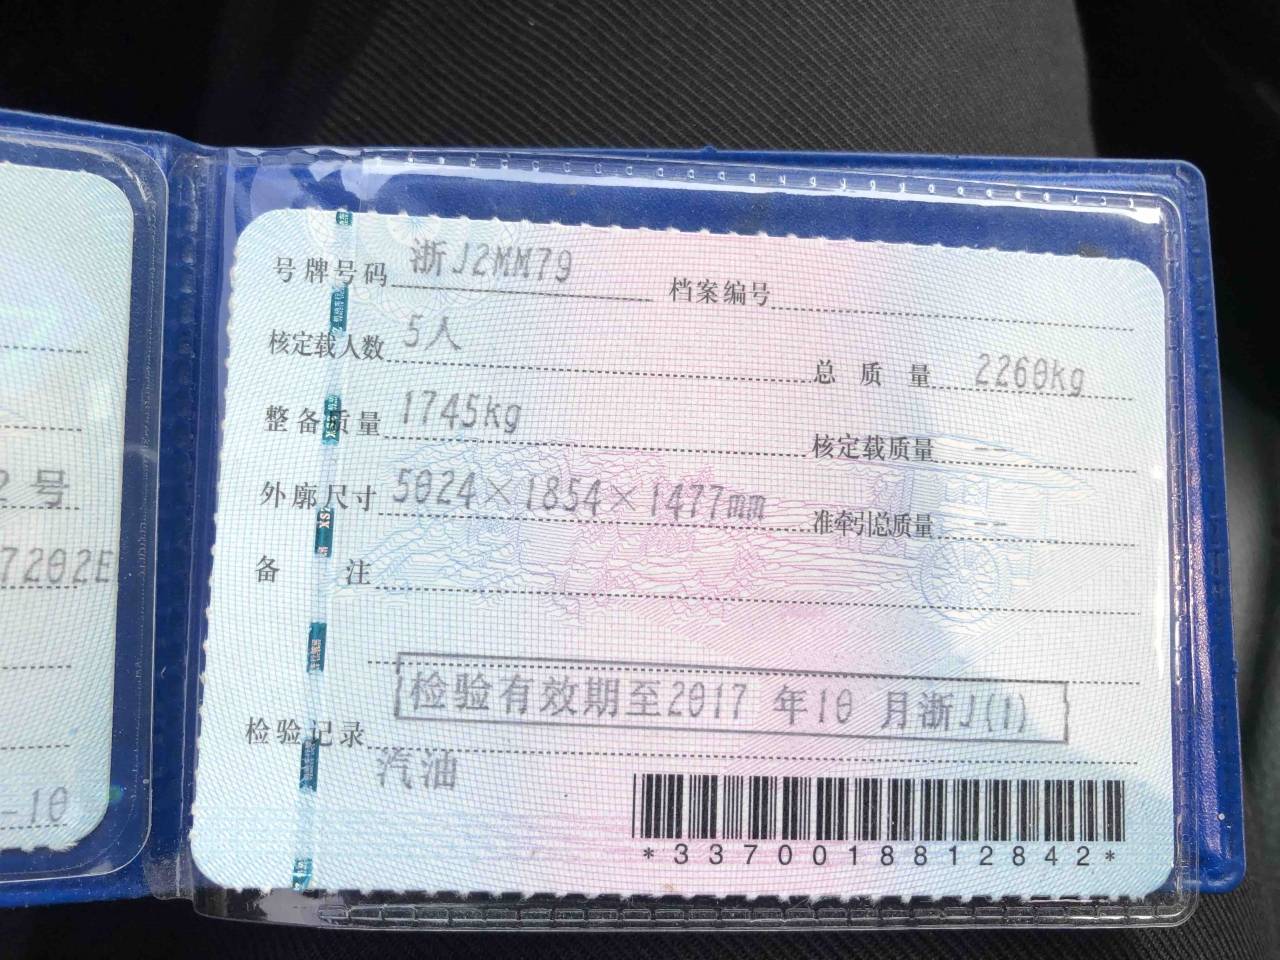 号牌号码 浙J2MM79 档案编号
核定载人数 5人 总质量 2260kg
整备质量 1745kg 核定载质量 --
外廓尺寸 5024×1854×1477mm 准牵引总质量 --
备注
检验记录 检验有效期至2017 年10 月浙J(1)
汽油
*3370018812842*
2号
7202E
-10